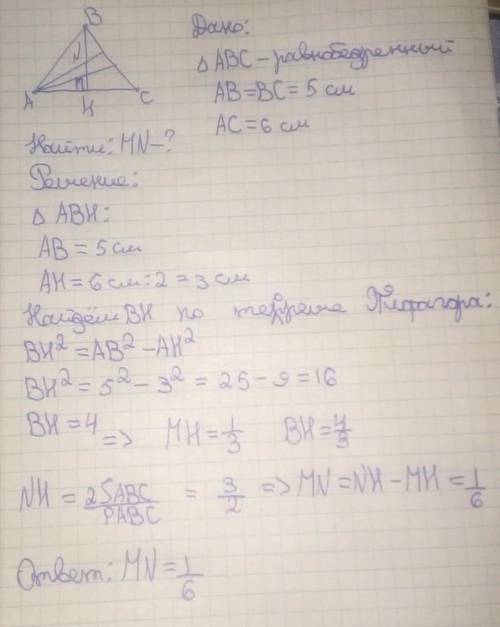 B
Дано:
N
△ABC – равнобедренный
AB = BC = 5 см
M
A H C
AC = 6 см
Найти: MN – ?
Решение:
△ ABH:
AB = 5 см
AH = 6 см : 2 = 3 см
Найдём BH по теореме Пифагора:
BH² = AB² – AH²
BH² = 5² – 3² = 25 – 9 = 16
BH = 4 => MH = 1/3 BH = 4/3
NH = 2SABC/PABC = 3/2 => MN = NH – MH = 1/6
Ответ: MN = 1/6